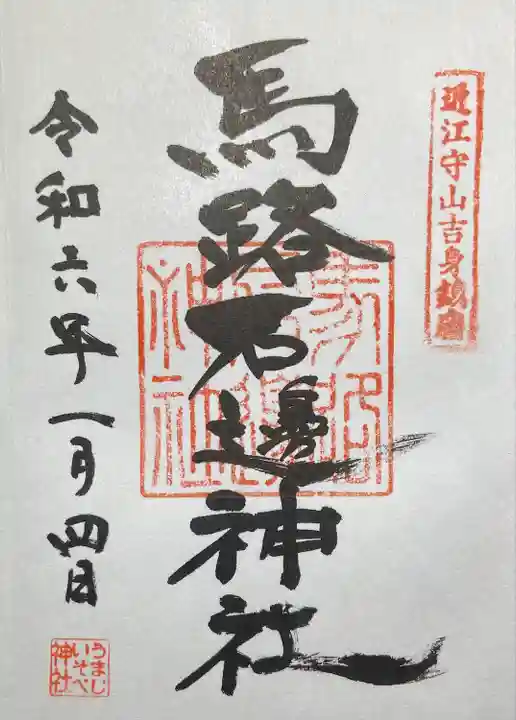 近江守山吉身鎮座
馬路石邊神社
令和六年一月四日
うまじ
いそべ
神社